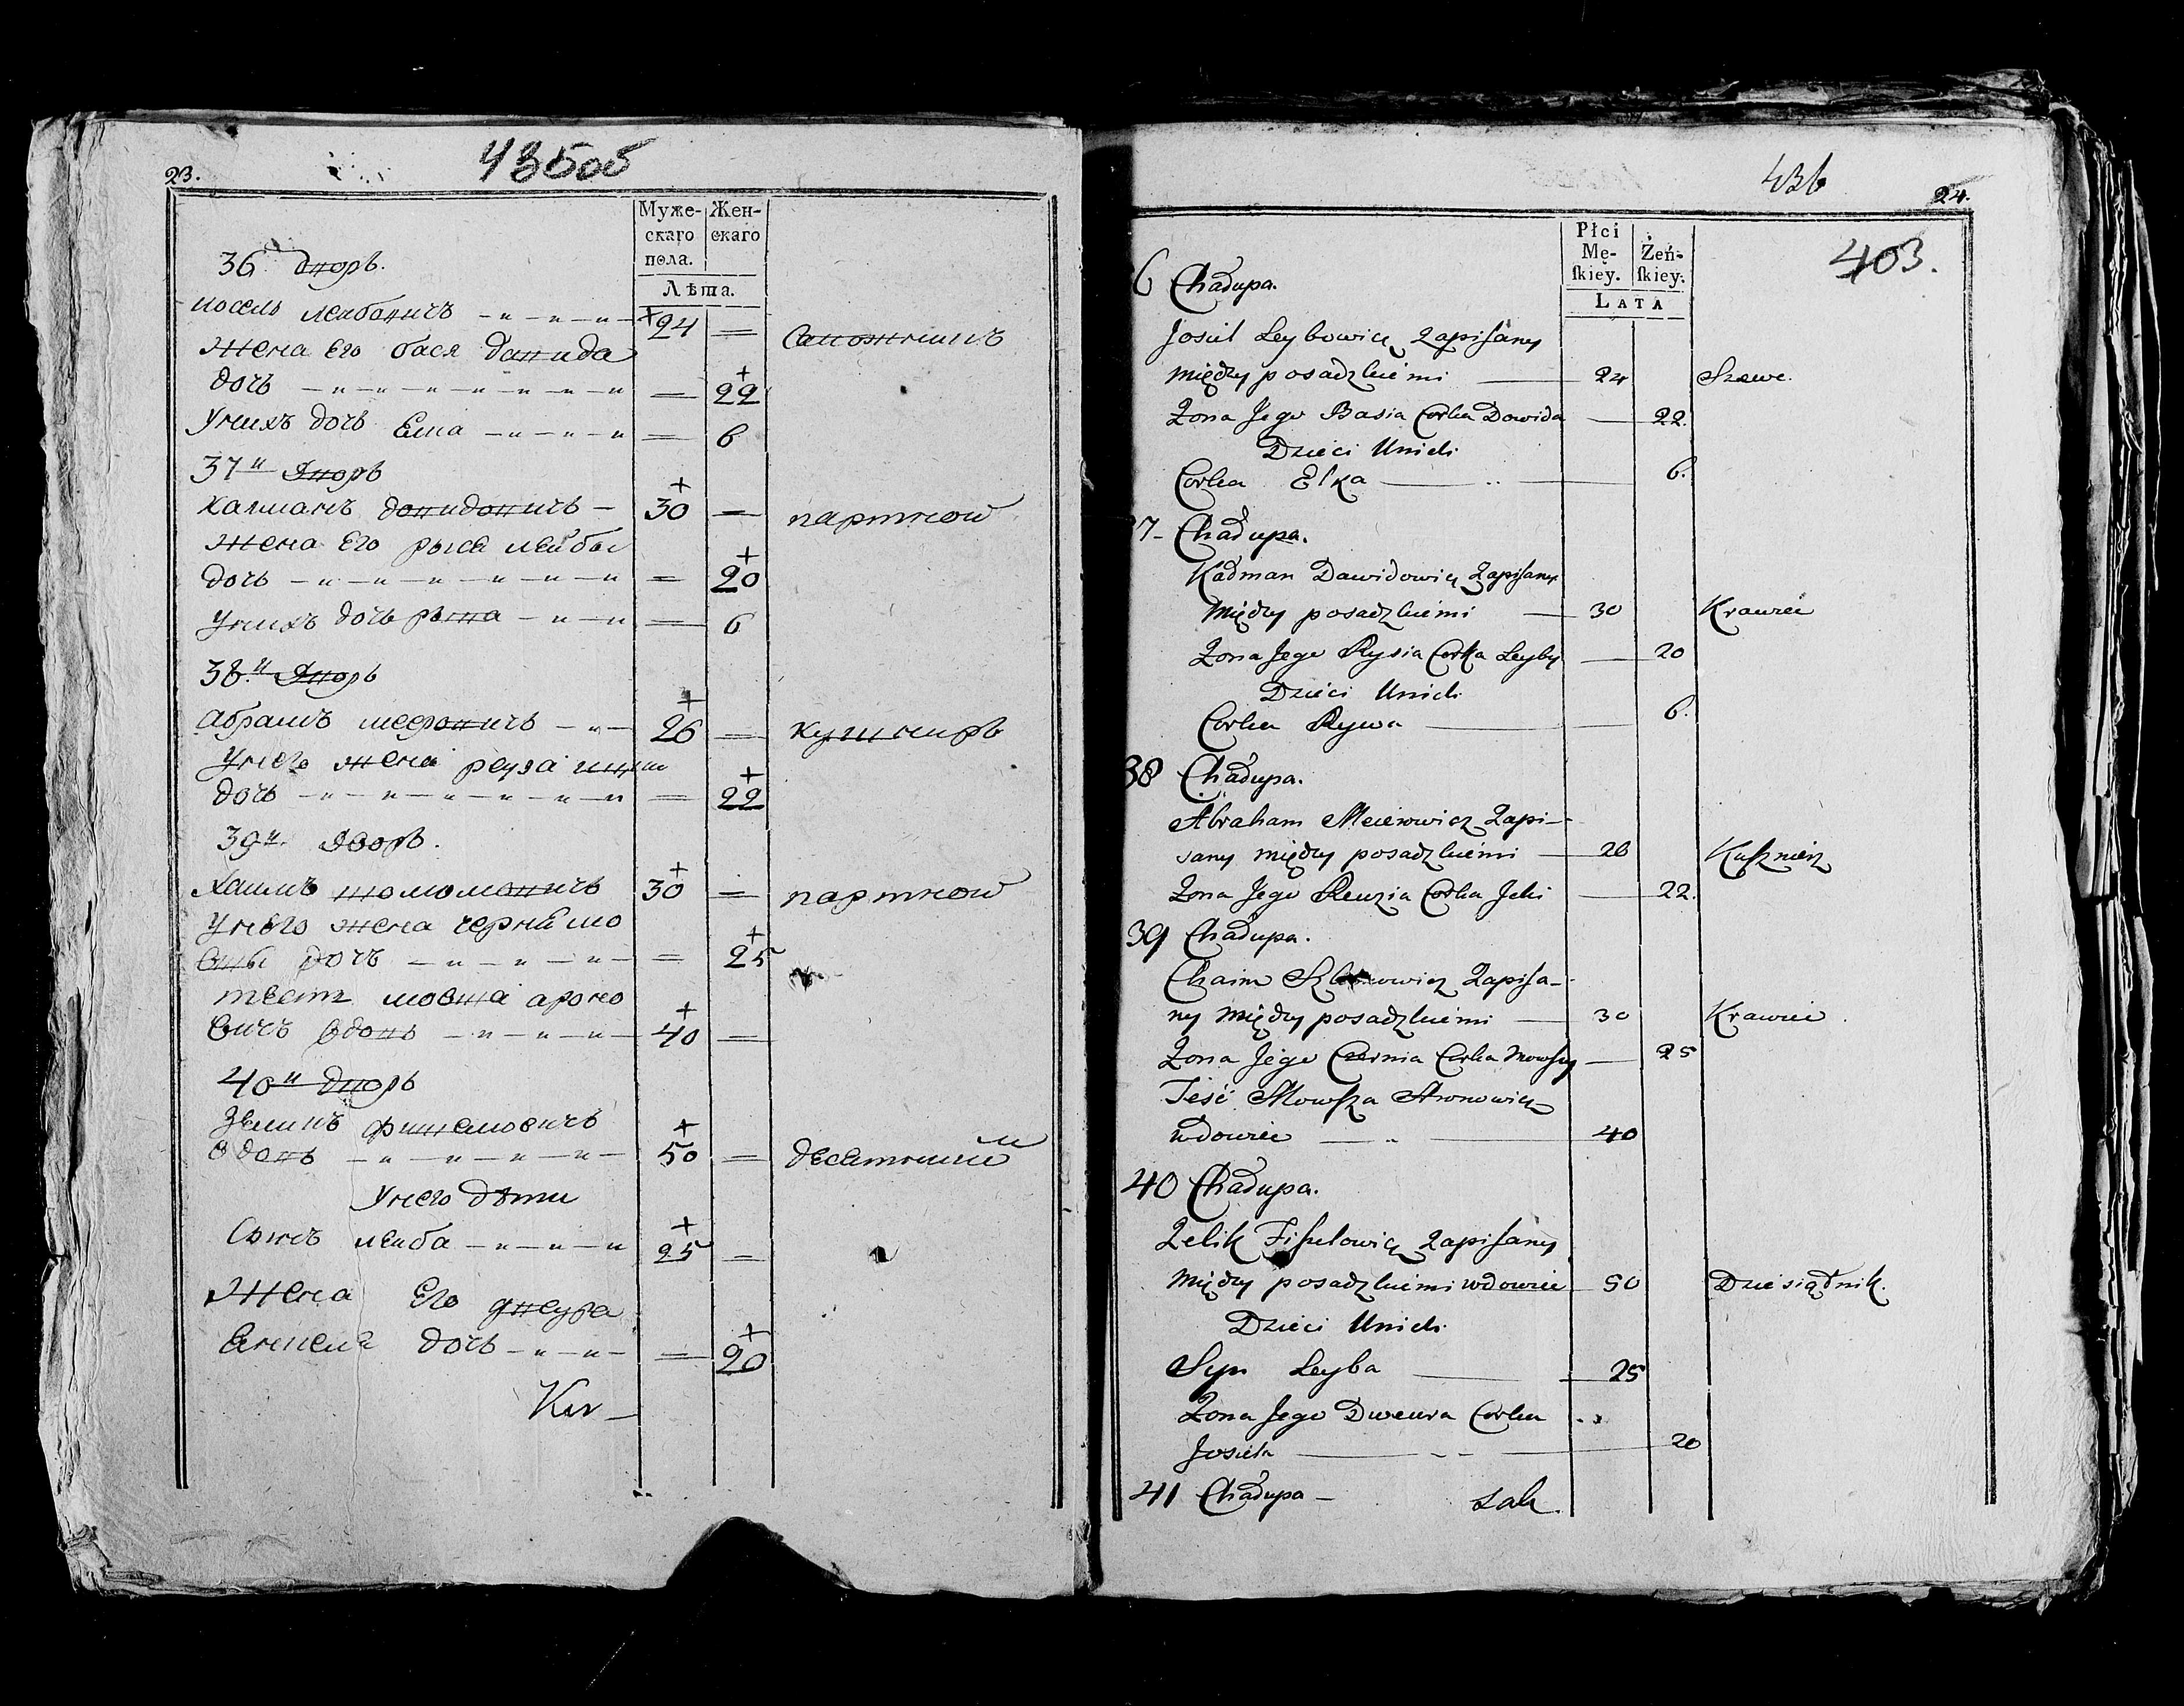 435об
23.
Муже-
скаго
пола.
Жен-
скаго
Лѣта.
36 дворъ.
иосель леибовичъ 24 = Сапожникъ
жена его бася давида
дочь = 22
унихъ дочь елка = 6
37й дворъ
калманъ давидовичъ 30 = партной
жена его рыся леибы
дочь = 20
унихъ дочь рыва = 6
38й дворъ
абрамъ мееровичъ 26 = кушниръ
унего жена реузя ицки
дочь = 22
39й дворъ.
хаимъ шломовичъ 30 = партной
унего жена черня мо
вшы дочь = 25
тесть мовша ароно
вичъ вдовъ 40 =
40й дворъ
зеликъ фишелевичъ
вдовъ 50 = десятникъ
унего дѣти
Сынъ леиба 25 =
жена его двеура
дочь = 20
436
24.
403.
Płci
Mę-
ſkiey.
Żeń-
ſkiey.
LATA
6 Chałupa.
Josiel Leybowicz zapisany
między posadzkiemi 24 Szewc.
Zona Jego Basia Corka Dowida 22.
Dzieci Unich
Corka Elka 6.
7 Chałupa.
Kałman Dawidowicz zapisany
między posadzkiemi 30 Krawiec
Zona Jego Rysia Corka Leyby 20
Dzieci Unich
Corka Rywa 6.
38 Chałupa.
Abraham Meierowicz zapi-
sany między posadzkiemi 26 Kuſznierz
Zona Jego Reuzia Corka Icki 22.
39 Chałupa.
Chaim zapisa-
ny między posadzkiemi 30 Krawiec.
Zona Jego Czernia Corka Mowszy 25
Teść Mowsza Aronowicz
wdowiec 40
40 Chałupa.
Zelik Fiszelowicz zapisany
między posadzkiemi wdowiec 50 Dziesiątnik.
Dzieci Unich
Syn Leyba 25
Zona Jego Dweura Corka
Josiela 20
41 Chałupa